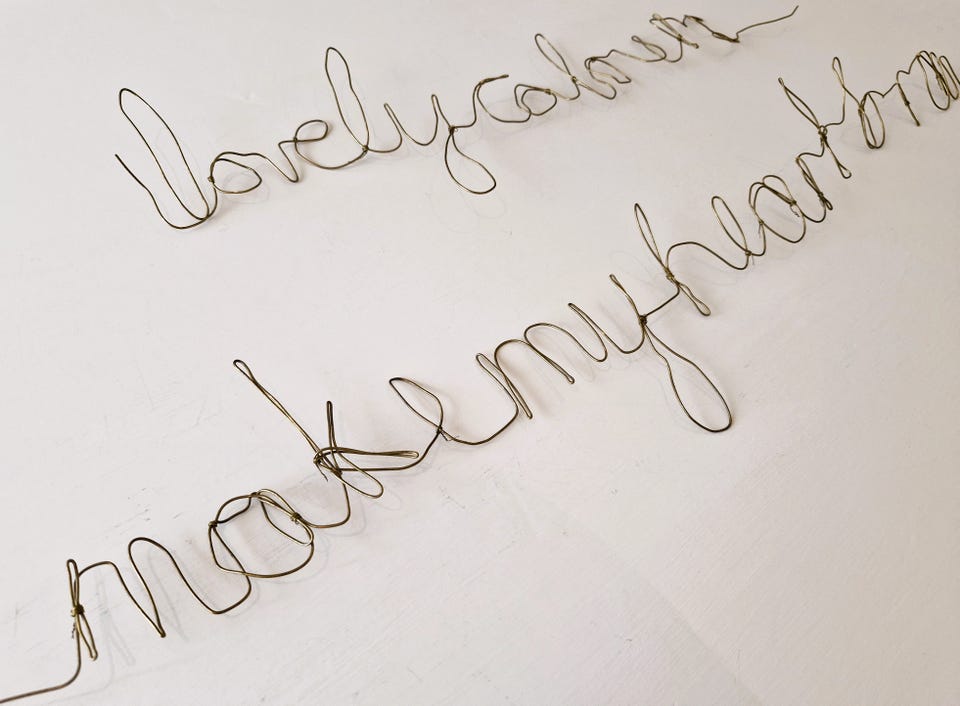 lovely colours
make my heart